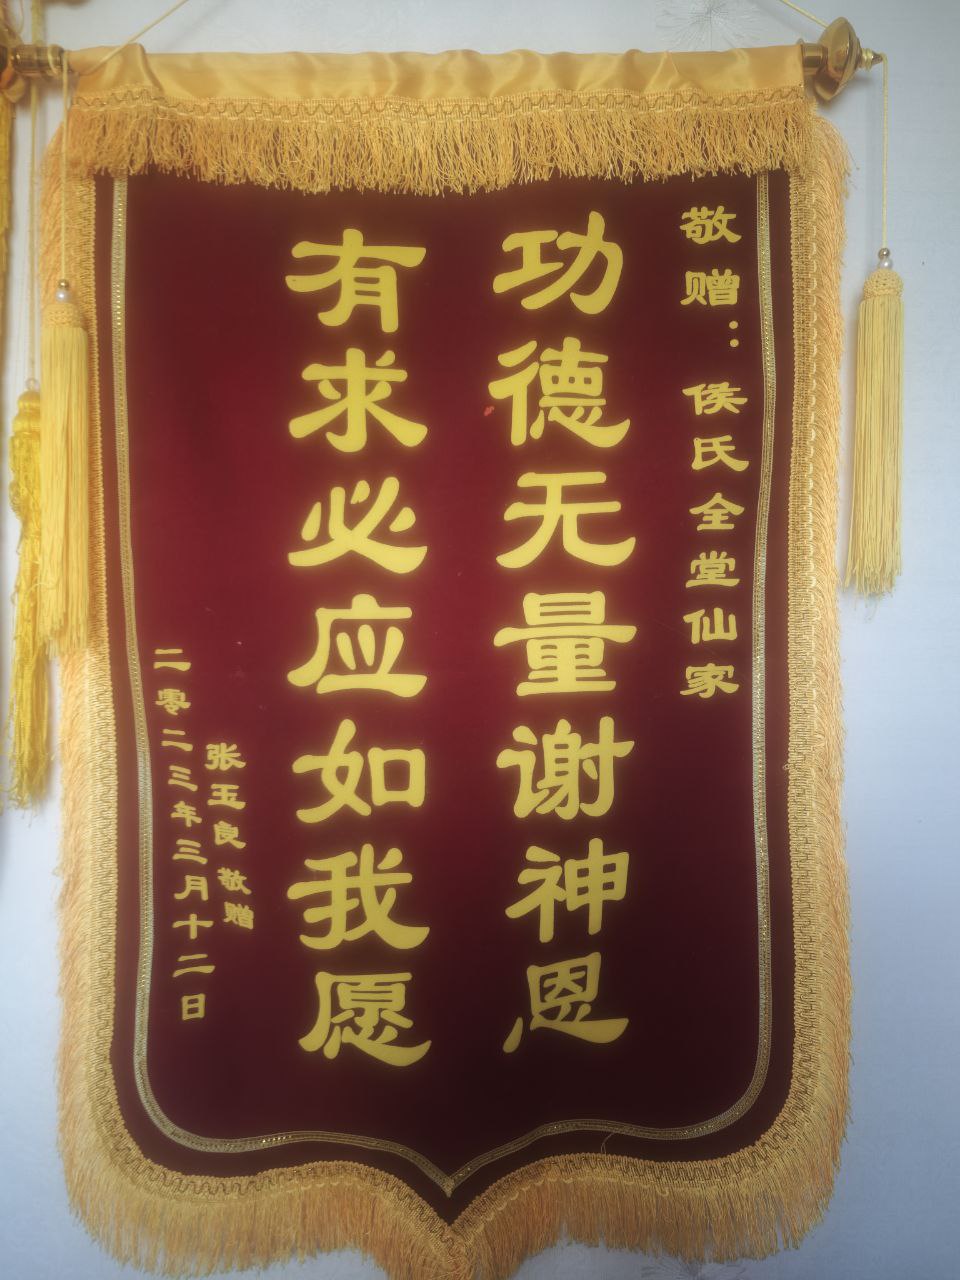 敬赠：侯氏全堂仙家
功德无量谢神恩
有求必应如我愿
张玉良敬赠
二零二三年三月十二日